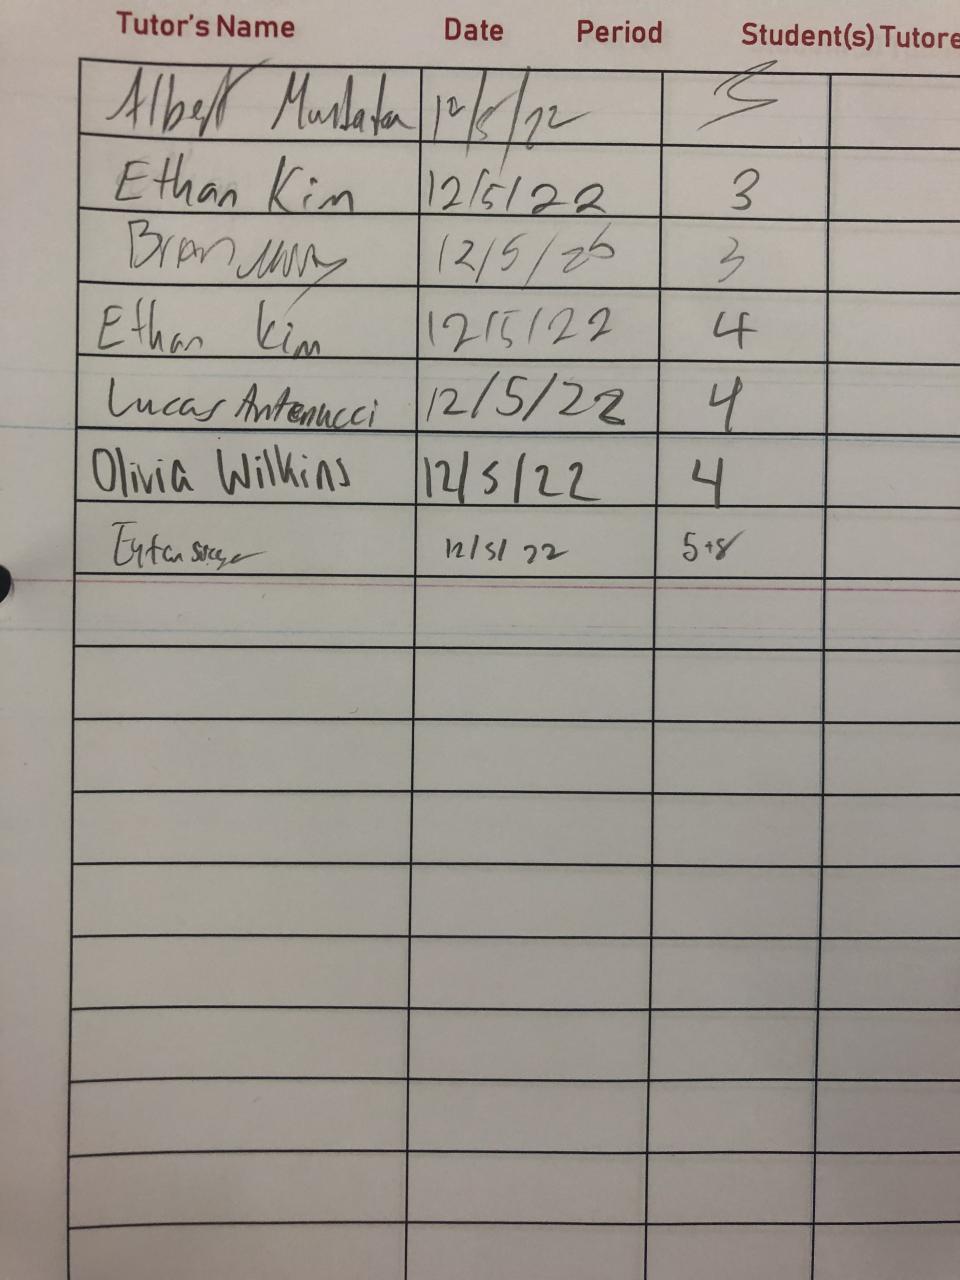 Tutor's Name Date Period Student(s) Tutore
Albert 12/5/22 3
Ethan Kim 12/5/22 3
Brian 12/5/ 3
Ethan Kim 12/5/22 4
Lucas Antenucci 12/5/22 4
Olivia Wilkins 12/5/22 4
Eytan 12/5/22 5+8